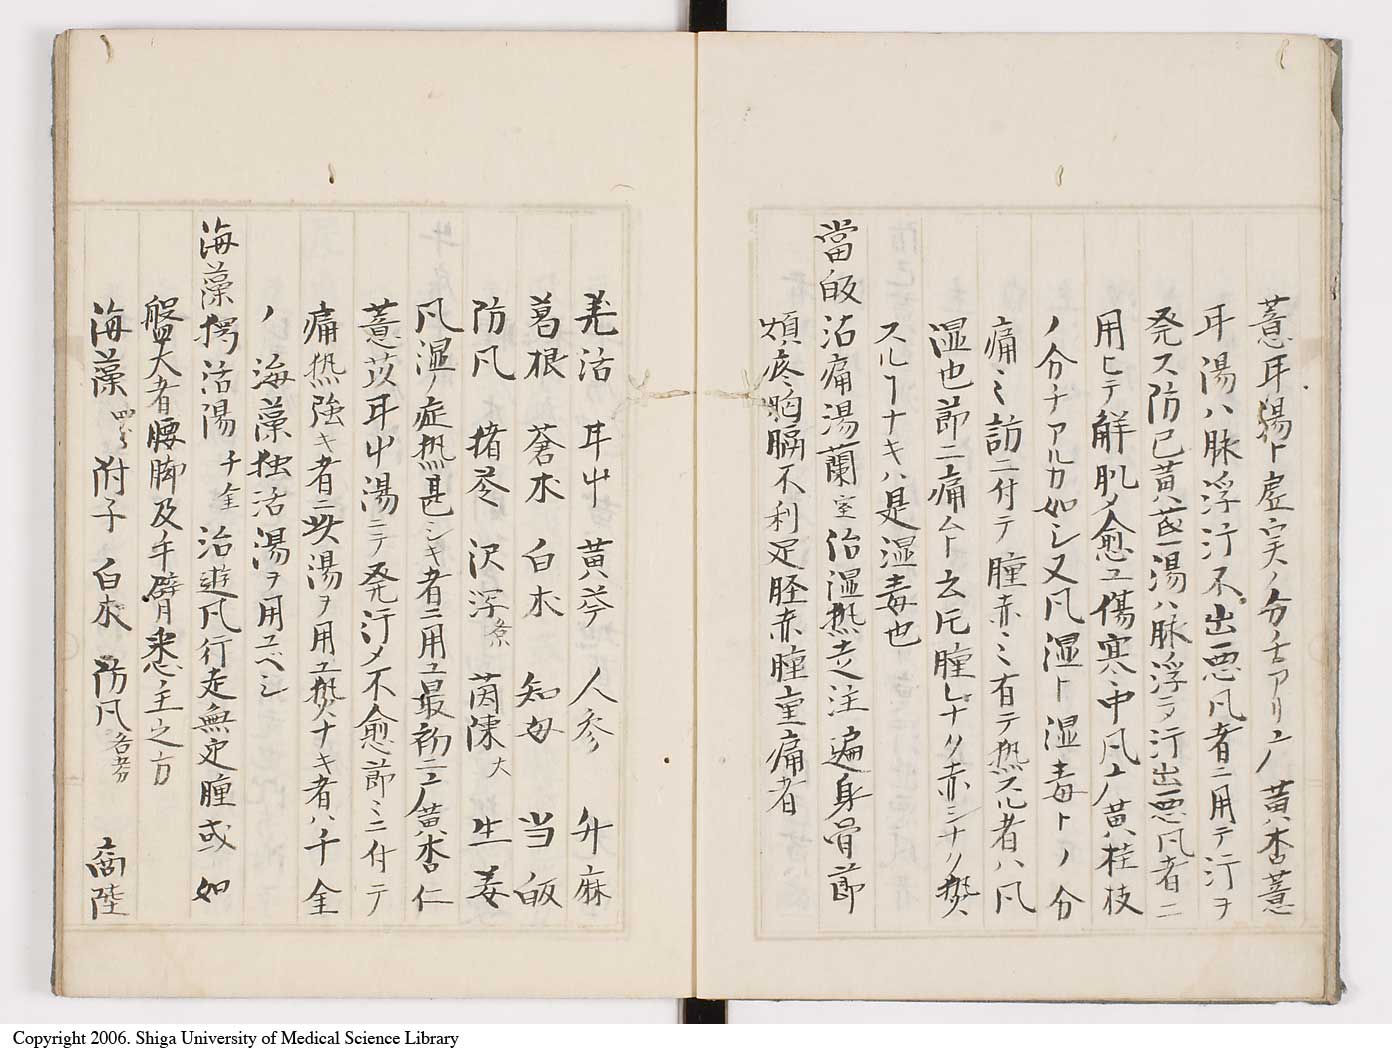 薏耳湯ト虚実ノ分チアリ麻黄杏薏
耳湯ハ脉浮汗不出悪凡者ニ用テ汗ヲ
発ス防已黄芪湯ハ脉浮ヲ汗出悪凡者ニ
用ヒテ解肌メ愈ユ傷寒中凡麻黄桂枝
ノ分チアルカ如シ又凡湿ト湿毒トノ分
痛ミ訪ニ付テ腫赤ミ有テ熱スル者ハ凡
湿也節ニ痛ムト云圧腫レナク赤ミナク熱
スルヿナキハ是湿毒也
當皈沾痛湯蘭室治湿熱走注遍身骨節
煩疼胸膈不利足胫赤腫重痛者
羌活 耳艸 黄芩 人参 升麻
葛根 蒼朮 白朮 知母 当皈
防凡 猪苓 沢瀉 茵陳大 生姜
凡湿ノ症熱甚シキ者ニ用ユ最初ニ麻黄杏仁
薏苡耳艸湯ニテ発汗メ不愈節ミニ付テ
痛熱強キ者ニ此湯ヲ用ユ熱ナキ者ハ千金
ノ海藻独活湯ヲ用ユベシ
海藻活湯千金治遊凡行走無定腫或如
盤大者腰脚及手臂悉主之方
海藻 附子 白朮 防凡 商陸
Copyright 2006. Shiga University of Medical Science Library